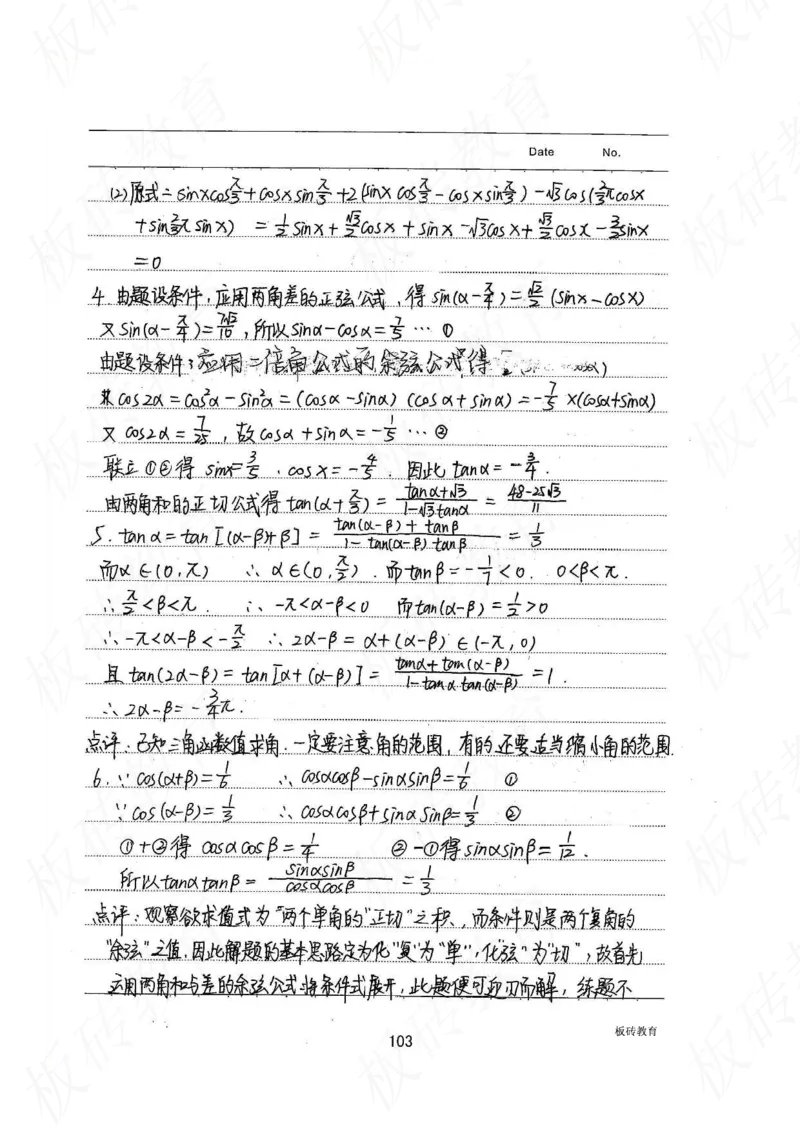 Date No.
(2)原式=sinxcosπ/3+cosxsinπ/3+2(sinxcosπ/3-cosxsinπ/3)-√3cos(2/3πcosx
+sin2/3πsinx) =1/2sinx+√3/2cosx+sinx-√3cosx+√3/2cosx-3/2sinx
=0
4.由题设条件,应用两角差的正弦公式,得sin(α-π/4)=√2/2(sinx-cosx)
又sin(α-π/4)=7√2/10,所以sinα-cosα=7/5…①
由题设条件:应用二倍角公式的余弦公式得
cos2α=cos²α-sin²α=(cosα-sinα)(cosα+sinα)=-7/5×(cosα+sinα)
又cos2α=7/25,故cosα+sinα=-1/5…②
联立①②得sinx=3/5,cosx=-4/5.因此tanα=-3/4.
由两角和的正切公式得tan(α+π/3)=(tanα+√3)/(1-√3tanα)=(48-25√3)/11
5.tanα=tan[(α-β)+β]=(tan(α-β)+tanβ)/(1-tan(α-β)tanβ)=1/3
而α∈(0,π) ∴α∈(0,π/2).而tanβ=-1/7<0. 0<β<π.
∴π/2<β<π. ∴-π<α-β<0 而tan(α-β)=1/2>0
∴-π<α-β<-π/2 ∴2α-β=α+(α-β)∈(-π,0)
且tan(2α-β)=tan[α+(α-β)]=(tanα+tan(α-β))/(1-tanαtan(α-β))=1.
∴2α-β=-3/4π.
点评:已知三角函数值求角.一定要注意角的范围,有的还要适当缩小角的范围.
6.∵cos(α+β)=1/6 ∴cosαcosβ-sinαsinβ=1/6 ①
∵cos(α-β)=1/3 ∴cosαcosβ+sinαsinβ=1/3 ②
①+②得cosαcosβ=1/4 ②-①得sinαsinβ=1/12.
所以tanαtanβ=sinαsinβ/cosαcosβ=1/3
点评:观察欲求值式为"两个单角的"正切"之积,而条件则是两个复角的
"余弦"之值,因此解题的基本思路定为化"复"为"单",化"弦"为"切",故首先
运用两角和与差的余弦公式将条件式展开,此题便可迎刃而解,练题不
103
板砖教育